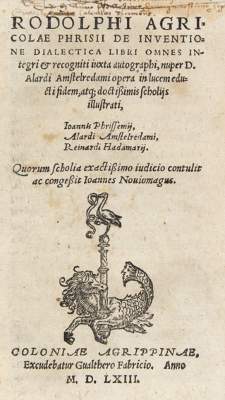 RODOLPHI AGRI-
COLAE PHRISII DE INVENTIO
NE DIALECTICA LIBRI OMNES IN
tegri & recogniti iuxta autographi, nuper D.
Alardi Amstelredami opera in lucem edu
cti fidem, atq; doctißimis scholijs
illustrati,
Ioannis Phrissemij,
Alardi Amstelredami,
Reinardi Hadamarij.
Quorum scholia exactißimo iudicio contulit
ac congeßit Ioannes Nouiomagus.
COLONIAE AGRIPPINAE,
Excudebatur Gualthero Fabricio. Anno
M. D. LXIII.